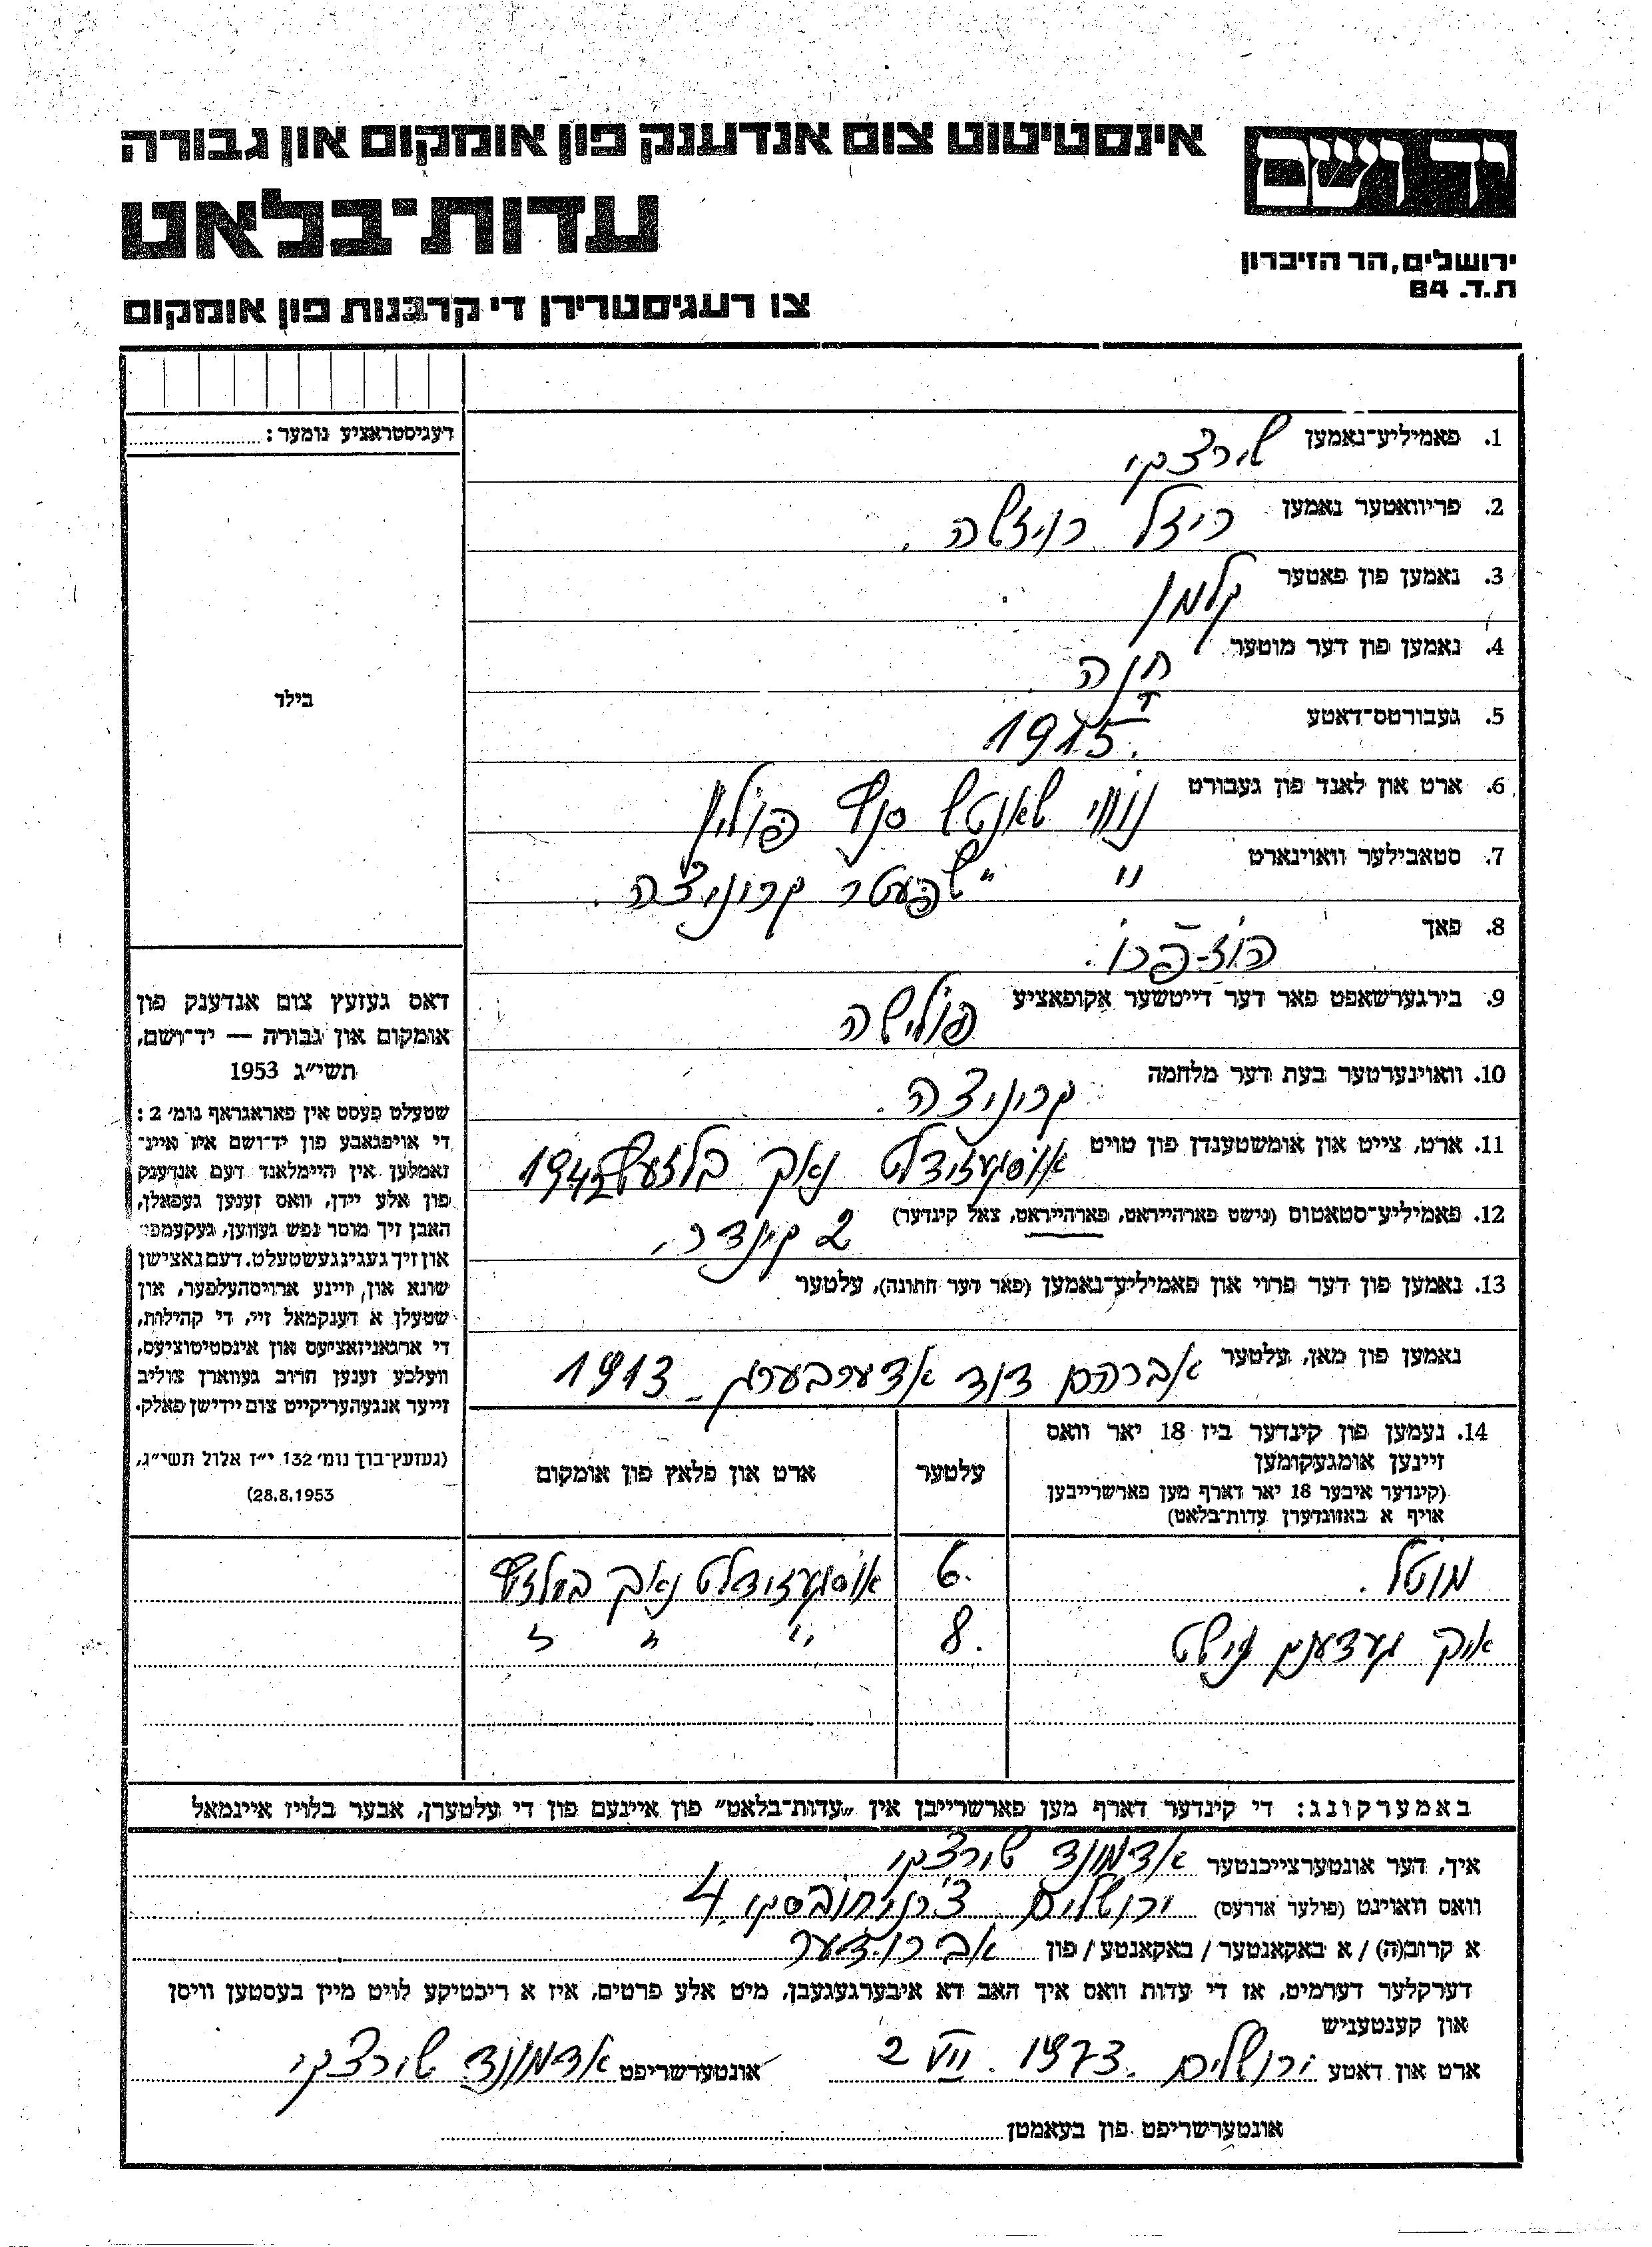 אינסטיטוט צום אנדענק פון אומקום און גבורה
יד ושם
עדות־בלאט
ירושלים, הר הזיכרון
ת.ד. 84
צו רעגיסטרירן די קרבנות פון אומקום
רעגיסטראציע נומער:
1. פאמיליע־נאמען שורצקי
2. פריוואטער נאמען רייזל רויזשה.
3. נאמען פון פאטער קלמן
4. נאמען פון דער מוטער חנה
בילד
5. געבורטס־דאטע 1915
6. ארט און לאנד פון געבורט נווי שאנטש פולין
7. סטאבילער וואוינארט " " שפעטר קרוניצה.
8. פאך הוז־פרוי.
9. בירגערשאפט פאר דער דייטשער אקופאציע פולישה
10. וואוינערטער בעת דער מלחמה קרוניצה.
11. ארט, צייט און אומשטענדן פון טויט אוסגעזידלט נאך בלזעץ 1942
12. פאמיליע־סטאטוס (נישט פארהייראט, פארהייראט, צאל קינדער) 2 קינדר.
13. נאמען פון דער פרוי און פאמיליע־נאמען (פאר דער חתונה), עלטער
נאמען פון מאן, עלטער אברהם דוד אדערבערג - 1913
דאס געזעץ צום אנדענק פון
אומקום און גבורה — יד־ושם,
תשי״ג 1953
שטעלט פעסט אין פאראגראף נומ׳ 2:
די אויפגאבע פון יד־ושם איז איינ־
זאמלען אין היימלאנד דעם אנדענק
פון אלע יידן, וואס זענען געפאלן,
האבן זיך מוסר נפש געווען, געקעמפט
און זיך געגינגעשטעלט. דעם נאצישן
שונא און זיינע ארויסהעלפער, און
שטעלן א דענקמאל זיי, די קהילות,
די ארגאניזאציעס און אינסטיטוציעס,
וועלכע זענען חרוב געווארן צוליב
זייער אנגעהעריקייט צום יידישן פאלק.
(געזעץ־בוך נומ׳ 132 י״ז אלול תשי״ג,
28.8.1953)
14. נעמען פון קינדער ביז 18 יאר וואס
זיינען אומגעקומען
(קינדער איבער 18 יאר דארף מען פארשרייבען
אויף א באזונדערן עדות־בלאט)
עלטער
ארט און פלאץ פון אומקום
מוטל. 6. אוסגעזידלט נאך בעלזעץ
איך געדענק נישט 8. " " "
באמערקונג: די קינדער דארף מען פארשרייבן אין „עדות־בלאט” פון איינעם פון די עלטערן, אבער בלויז איינמאל
איך, דער אונטערצייכנטער אדמונד שורצקי
וואס וואוינט (פולער אדרעס) ירושלים צ'רניחובסקי 4
א קרוב(ה) / א באקאנטער / באקאנטע / פון א ברודער
דערקלער דערמיט, אז די עדות וואס איך האב דא איבערגעגעבן, מיט אלע פרטים, איז א ריכטיקע לויט מיין בעסטען וויסן
און קענטעניש
ארט און דאטע ירושלים 2 VII. 1973. אונטערשריפט אדמונד שורצקי
אונטערשריפט פון בעאמטן